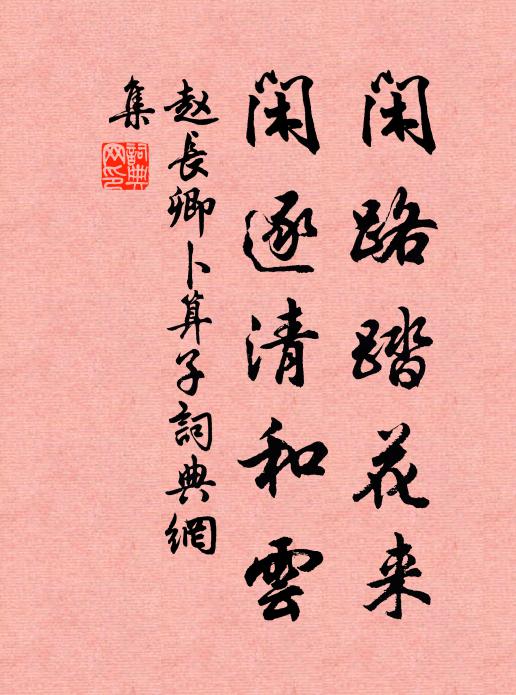 閑路踏花来
閑逐清和雲
赵長卿卜算子詞典網
集
詞典網印